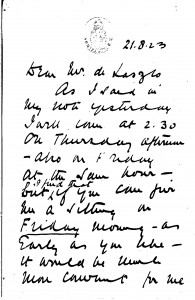 21.8.23
Dear Mr. de Laszlo
As I said in
my note yesterday
I will come at 2.30
On Thursday afternoon
- also on Friday
at the same hour -
but, if you can give
me a sitting on
Friday morning - as
Early as you like -
it would be much
more convenient for me